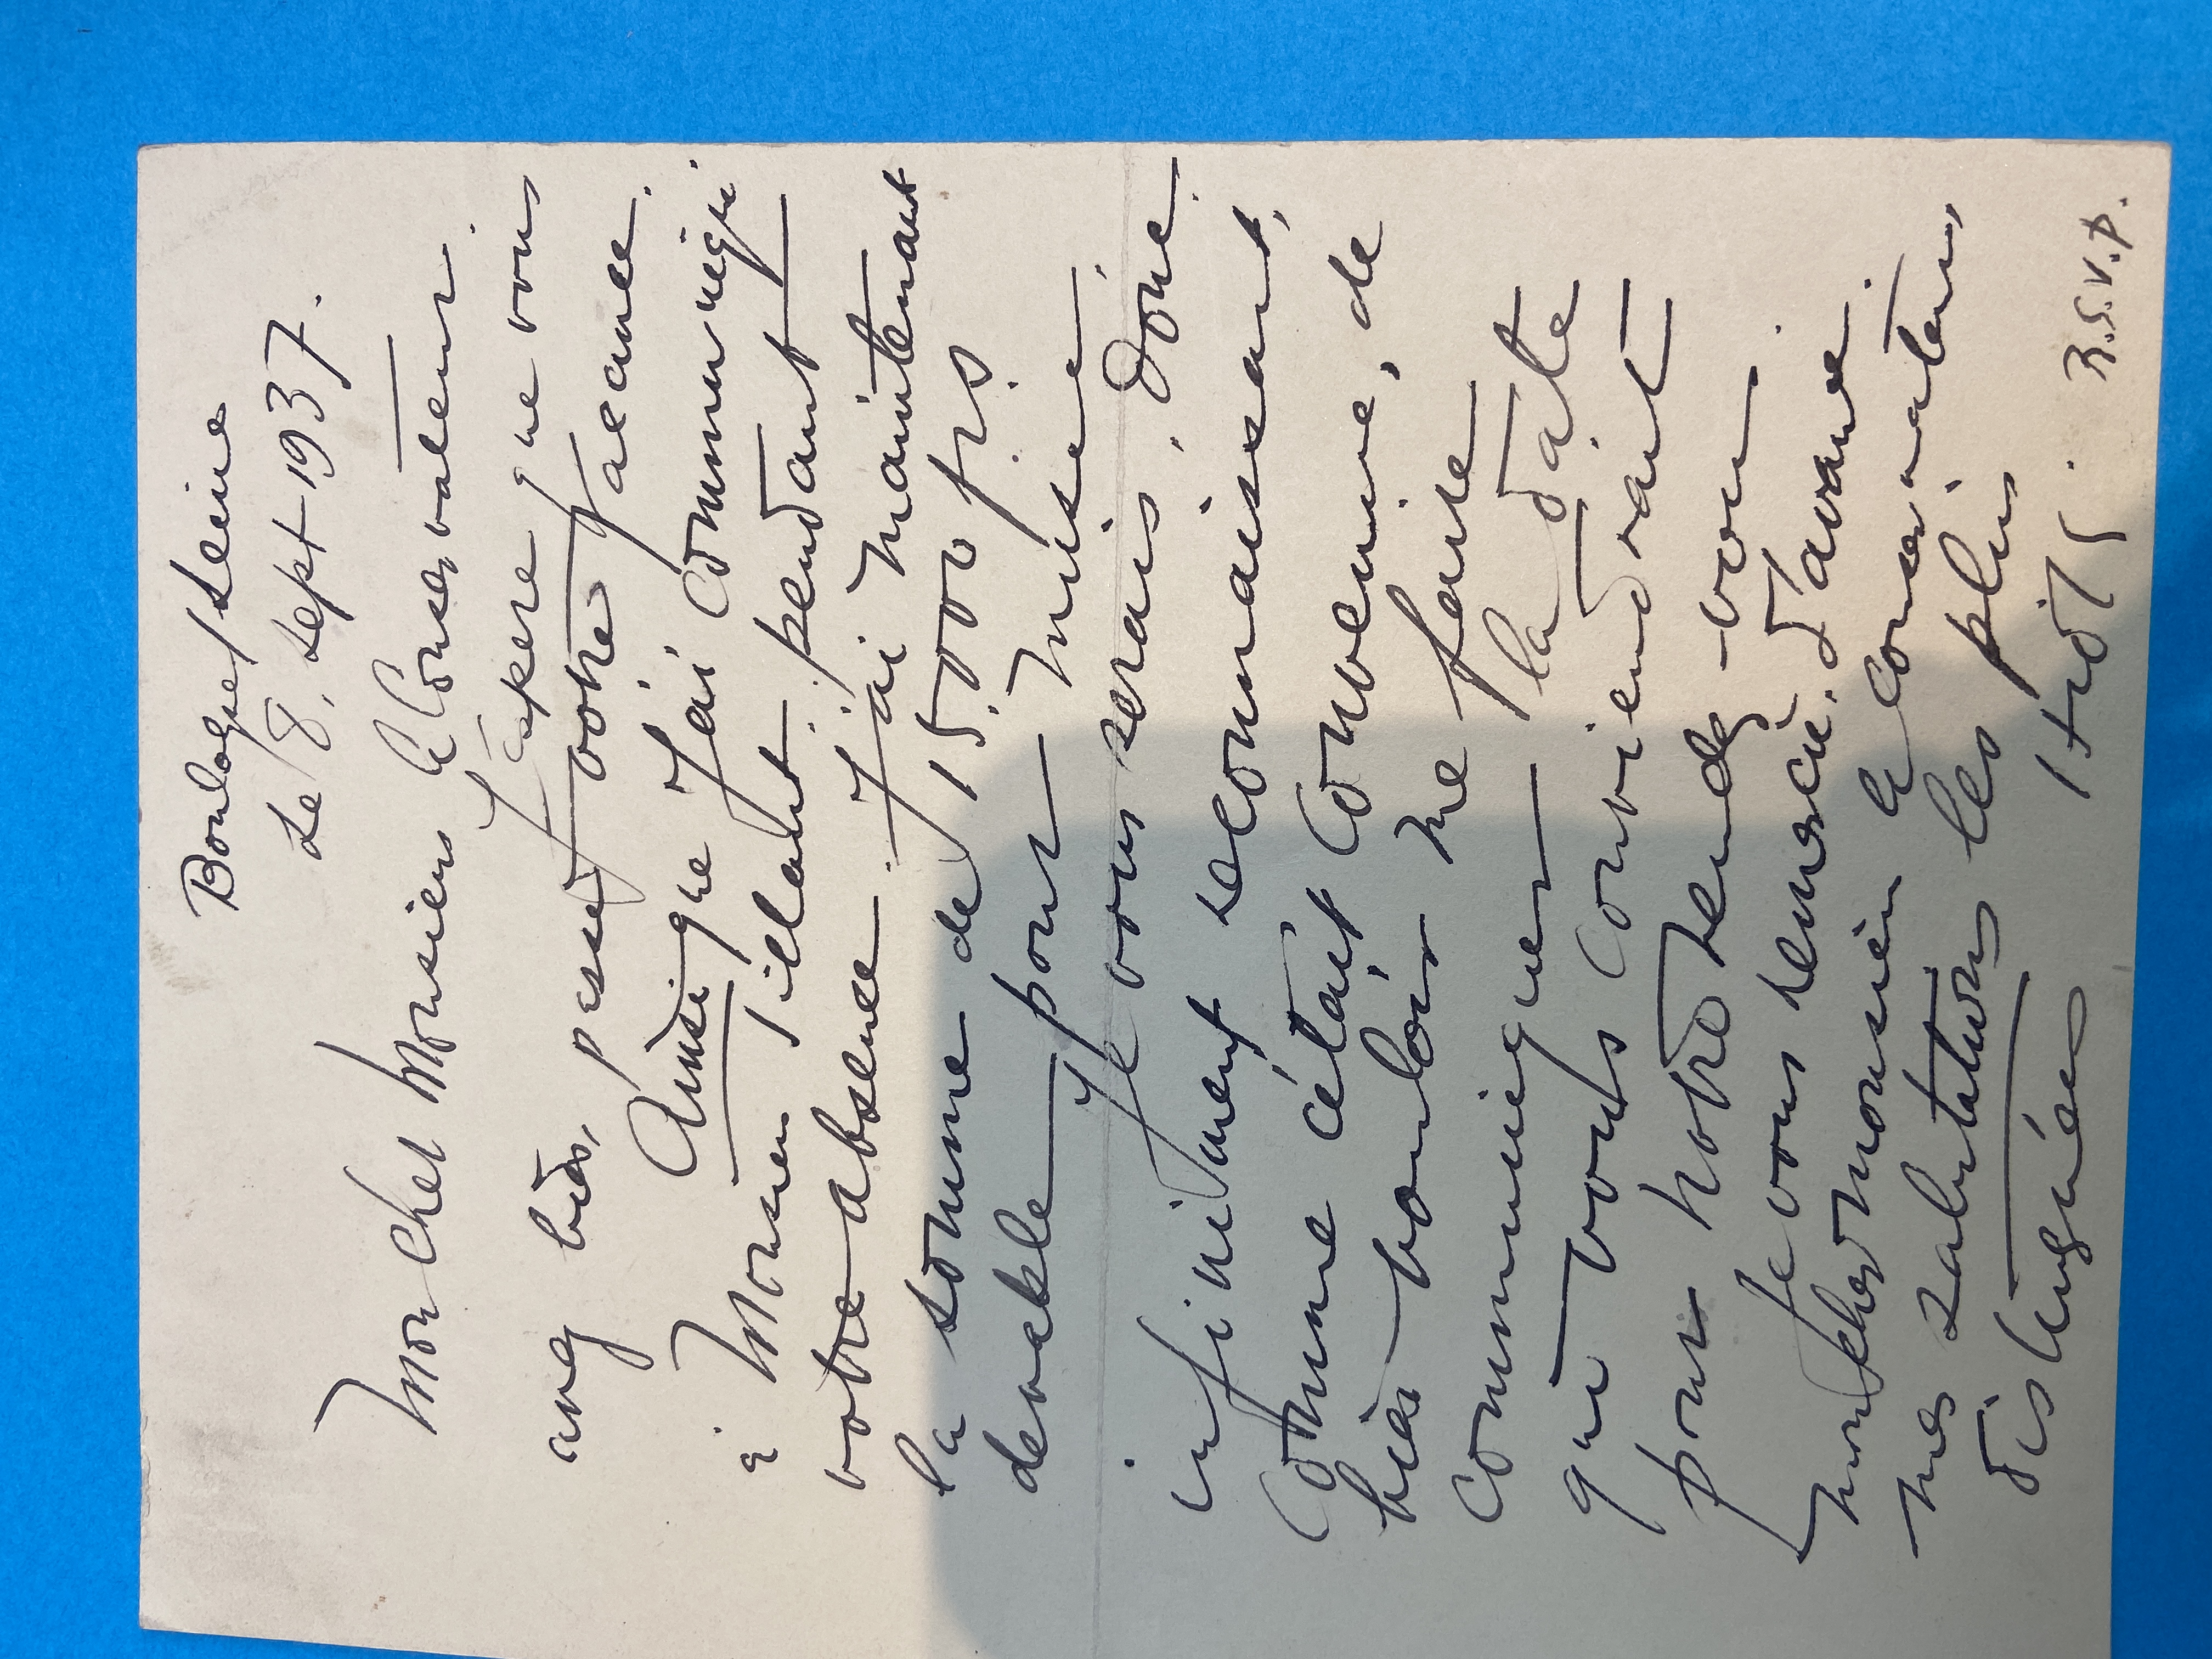 Boulogne s/ Seine
Le 8. Sept 1937.
Mon cher Monsieur le Conservateur.
J'espère que vous
avez bien passé votre vacance.
Ainsi que j'ai communiqué
à Monsieur Sillart pendant
votre absence. J'ai maintenant
la somme de 1500 frs
devable pour Musée
Je vous serais, donc
infiniment reconnaissant,
Comme c'était convenue, de
bien vouloir me faire
communiquer la date
qui vous conviendrait
pour notre rendez-vous.
Je vous remercie, d'avance.
mon cher monsieur le conservateur
mes salutations les plus
distinguées
R.S.V.P.